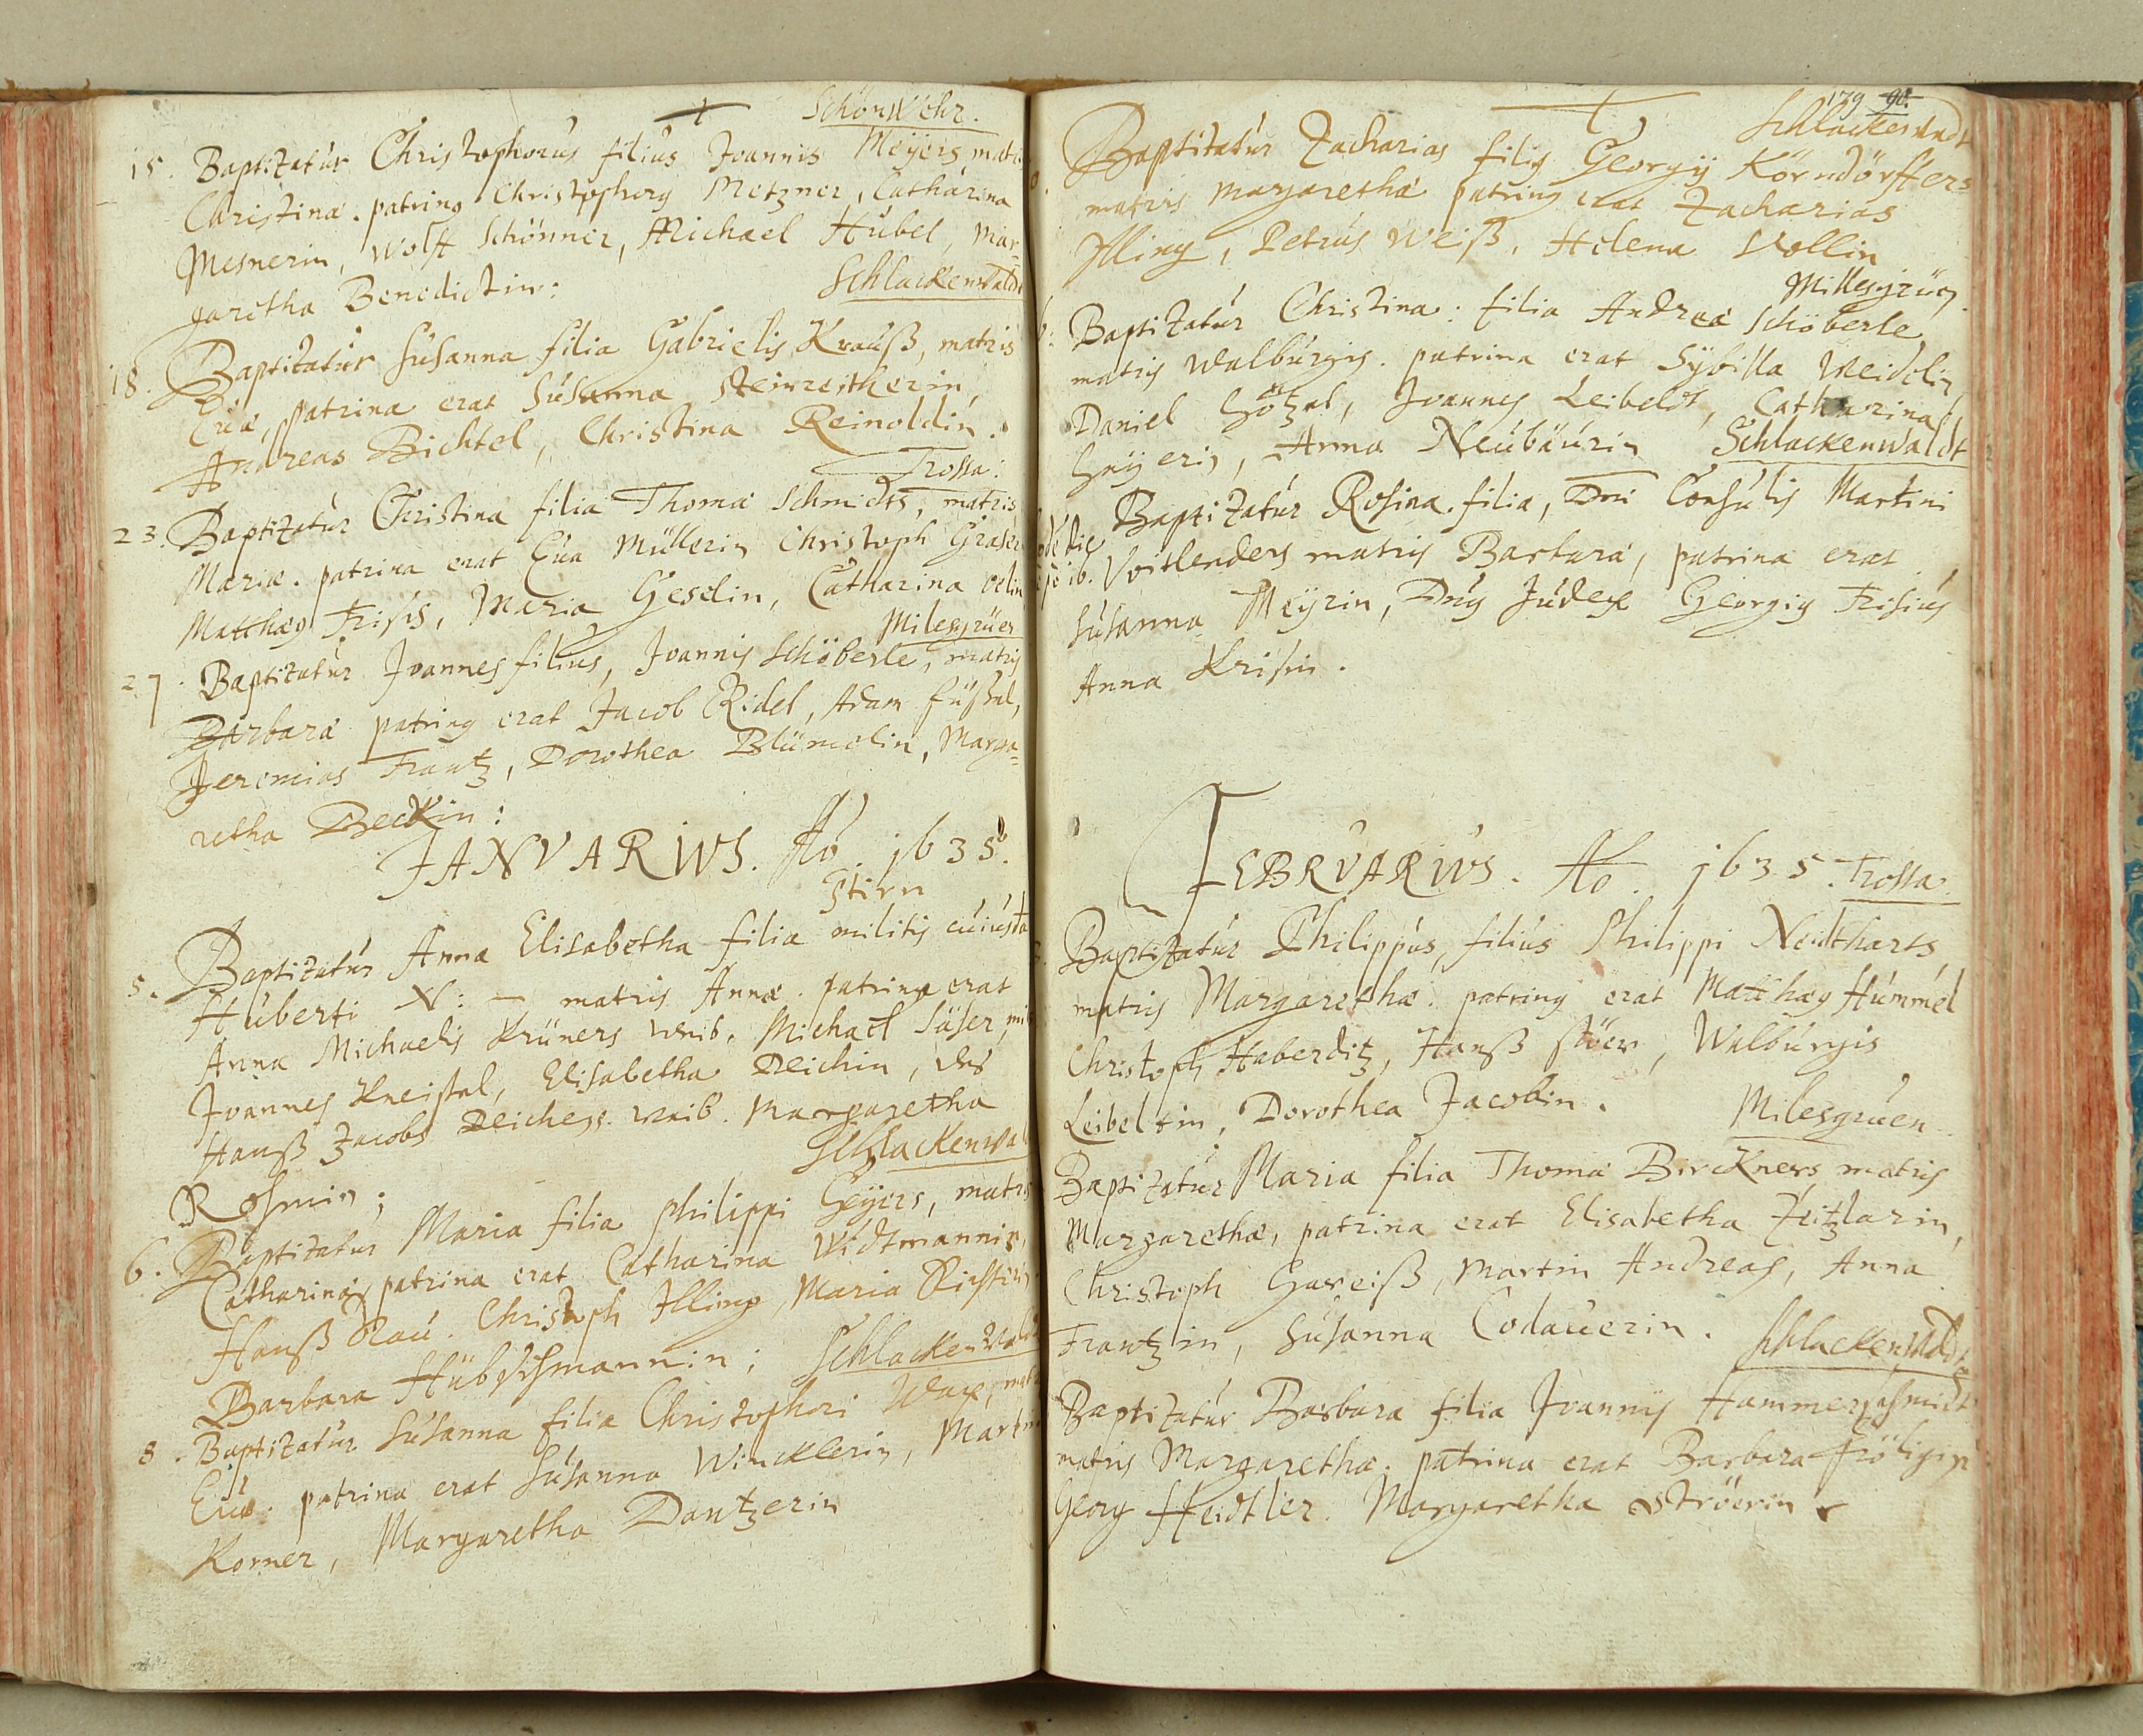 Schönwehr.
15. Baptizatur Christophorus filius Joannis Meÿers matris
Christinæ. patring Christopherg Metzner, Catharina
Mesnerin, Wolff Schönner, Michael Hübel, Mar=
garetha Benedictin:
Schlackenwaldt
18. Baptizatur Susanna filia Gabrielis Krauß, matris
Euæ, patrina erat Susanna Steinreitherin,
Andreas Bichtel, Christina Reinoldin.
Trossa:
23. Baptizatur Christina filia Thomæ Schmidts, matris
Mariæ. patrina erat Eua Müllerin Christoph Graser
Matthæg Frisis, Maria Geselin, Catharina
Milesgrüen
27. Baptizatur Joannes filius, Joannis Schöberle, matris
Barbaræ patring erat Jacob Ridel, Adam Füssel,
Jeremias Frantz, Dorothea Blümelin, Marga=
retha Beckin:
JANVARIVS. Aō. j635.
Stirn
5. Baptizatur Anna Elisabetha filia militis cuiusda
Huberti N: — matris Annæ. patrina erat
Anna Michaelis Krüners weib, Michael Säser,
Joannes Kneissel, Elisabetha Deichin, des
Hanß Jacobs Deichess. weib. Margaretha
Schlackenwal
Rosmin;
6. Baptizatur Maria filia Philippi Geÿers, matris
Catharinæ patrina erat Catharina Widtmannin,
Hanß Rau. Christoph Illing, Maria Richterin
Barbara Hübschmannin; Schlackenwaldt
8. Baptizatur Susanna filia Christophori Wax, matr
Euæ. patrina erat Susanna Wincklerin, Martin
Korner, Margaretha Dantzerin
179 90.
Schlackenwaldt
Baptizatur Zacharias filig Georgij Körndörffers
matris Margarethæ patring erat Zacharias
Illing, Petrus Weiß, Helena Wollin
Millesgrüen
Baptizatur Christina: filia Andreæ Schöberle,
matris Walburgis. patrina erat Sÿbilla Weidelin,
Daniel Hötzel, Joannes Leibeldt, Catharina
Heÿerin, Anna Neubäurin Schlackenwaldt
Baptizatur Rosina filia, Dni Consulis Martini
Voitlenders matris Barbaræ, patrina erat
Susanna Meÿrin, Dng Judex Georgig Frisius
Anna Krisin.
FEBRVARIVS. Aō. j635. Trossa
Baptizatur Philippus, filius Philippi Neidtharts,
matris Margarethæ. patring erat Matthæg Hummel
Christoph Haberditz, Hanß Stöer, Walburgis
Leibeltin, Dorothea Jacobin. Milesgrüen
Baptizatur Maria filia Thomæ Birckners matris
Margarethæ, patrina erat Elisabetha Zeitzlarin,
Christoph Gareiß, Martin Andreas, Anna
Frantzin, Susanna Codauerin. Schlackenwaldt
Baptizatur Barbara filia Joannis Hammerschmidt
matris Margarethæ. patrina erat Barbara Fröligin
Georg Heidtler. Margaretha Ströerin